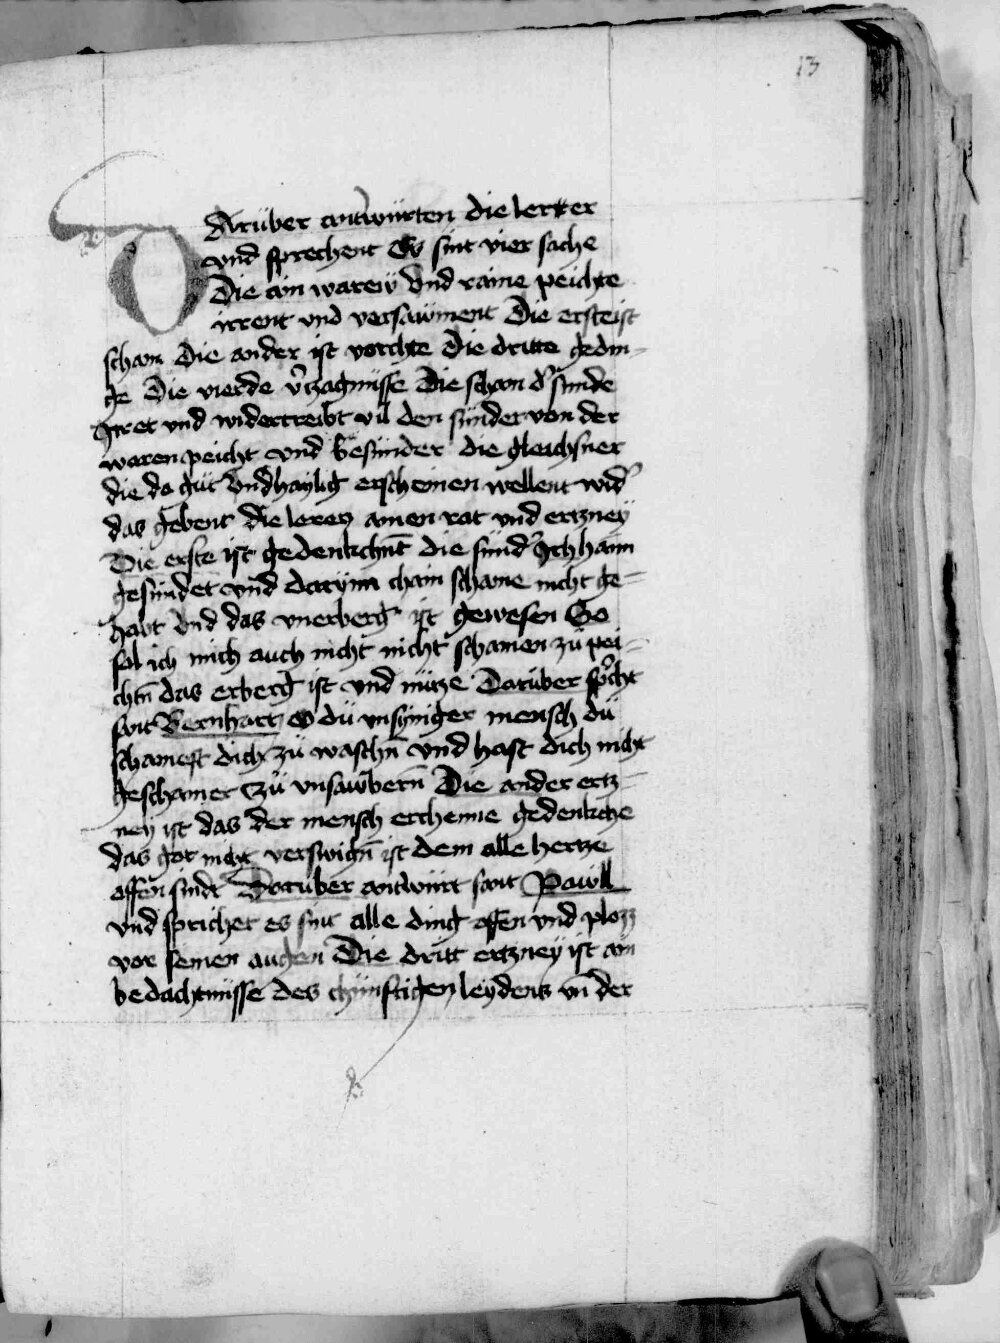 13
DArüber antwürten die lerrer
vnd sprechent Es sint vier sache
Die ain warew vnd raine peichte
irrent vnd versawment Die erst ist
scham Die ander ist vorchte die dritte gedin-
ge Die vierde v̉zagnüsse Die scham d̉ sünde
Irret vnd widertreibt vil den sünder von der
waren peicht vnd besünder die gleichsner
die do güt vnd haylig erscheinen wellent wid̉
das gebent die lerer ainen rat vnd ertzney
Die erste ist gedenkchnt̄ die sünd Ich hann
gesündet vnd darynn chain schame nicht ge-
habt vnd das vnerberg ist gewesen So
sol ich mich auch nicht nicht schamen zü pei-
chtn̄ das erberg ist vnd nütze Darüber sp̉cht
sant Bernhart O dü vnsyniger mensch dü
schamest dich zü waschn̄ vnd hast dich nicht
geschamet zü vnsawbern Die ander ertz-
ney ist das der mensch erchenne gedenkche
das got nicht verswign̄ ist dem alle hertze
offen sindt Darüber antwürt sant Pawll
vnd sprichet es sint alle ding offen vnd plozz
vor seinen augen Die dritt ertzney ist ain
bedachtnüsse des chünftigen leydens vn̄ der